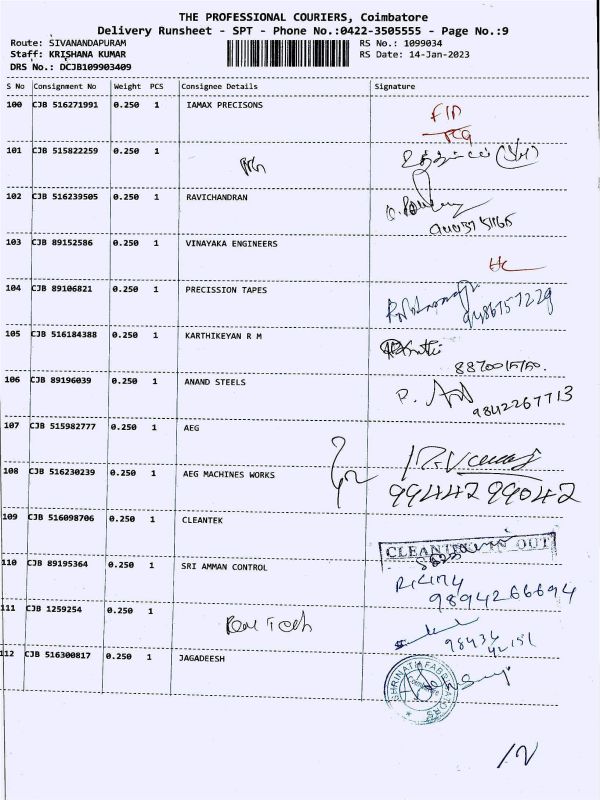 THE PROFESSIONAL COURIERS, Coimbatore
Delivery Runsheet - SPT - Phone No.:0422-3505555 - Page No.:9
Route: SIVANANDAPURAM RS No.: 1099034
Staff: KRISHANA KUMAR RS Date: 14-Jan-2023
DRS No.: DCJB109903409
S No Consignment No Weight PCS Consignee Details Signature
100 CJB 516271991 0.250 1 IAMAX PRECISONS
101 CJB 515822259 0.250 1
102 CJB 516239505 0.250 1 RAVICHANDRAN
103 CJB 89152586 0.250 1 VINAYAKA ENGINEERS
104 CJB 89106821 0.250 1 PRECISSION TAPES
9486157229
105 CJB 516184388 0.250 1 KARTHIKEYAN R M
106 CJB 89196039 0.250 1 ANAND STEELS
9842267713
107 CJB 515982777 0.250 1 AEG
108 CJB 516230239 0.250 1 AEG MACHINES WORKS
9944299042
109 CJB 516098706 0.250 1 CLEANTEK
CLEANTEK IN OUT
110 CJB 89195364 0.250 1 SRI AMMAN CONTROL
9894266694
111 CJB 1259254 0.250 1 Real Tech
112 CJB 516300817 0.250 1 JAGADEESH
SHRINATH FABRICATORS